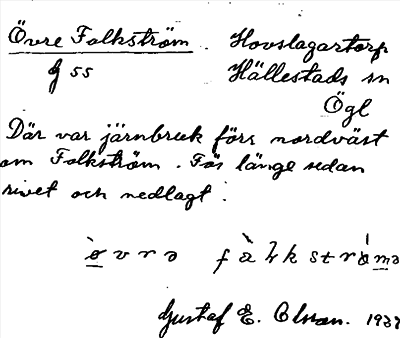 Övre Falkström. Hovslagartorp
g 55 Hällestads sn
Ögl
Där var järnbruk förr nordväst
om Falkström. För länge sedan
rivet och nedlagt.
Gustaf E. Olsson. 193